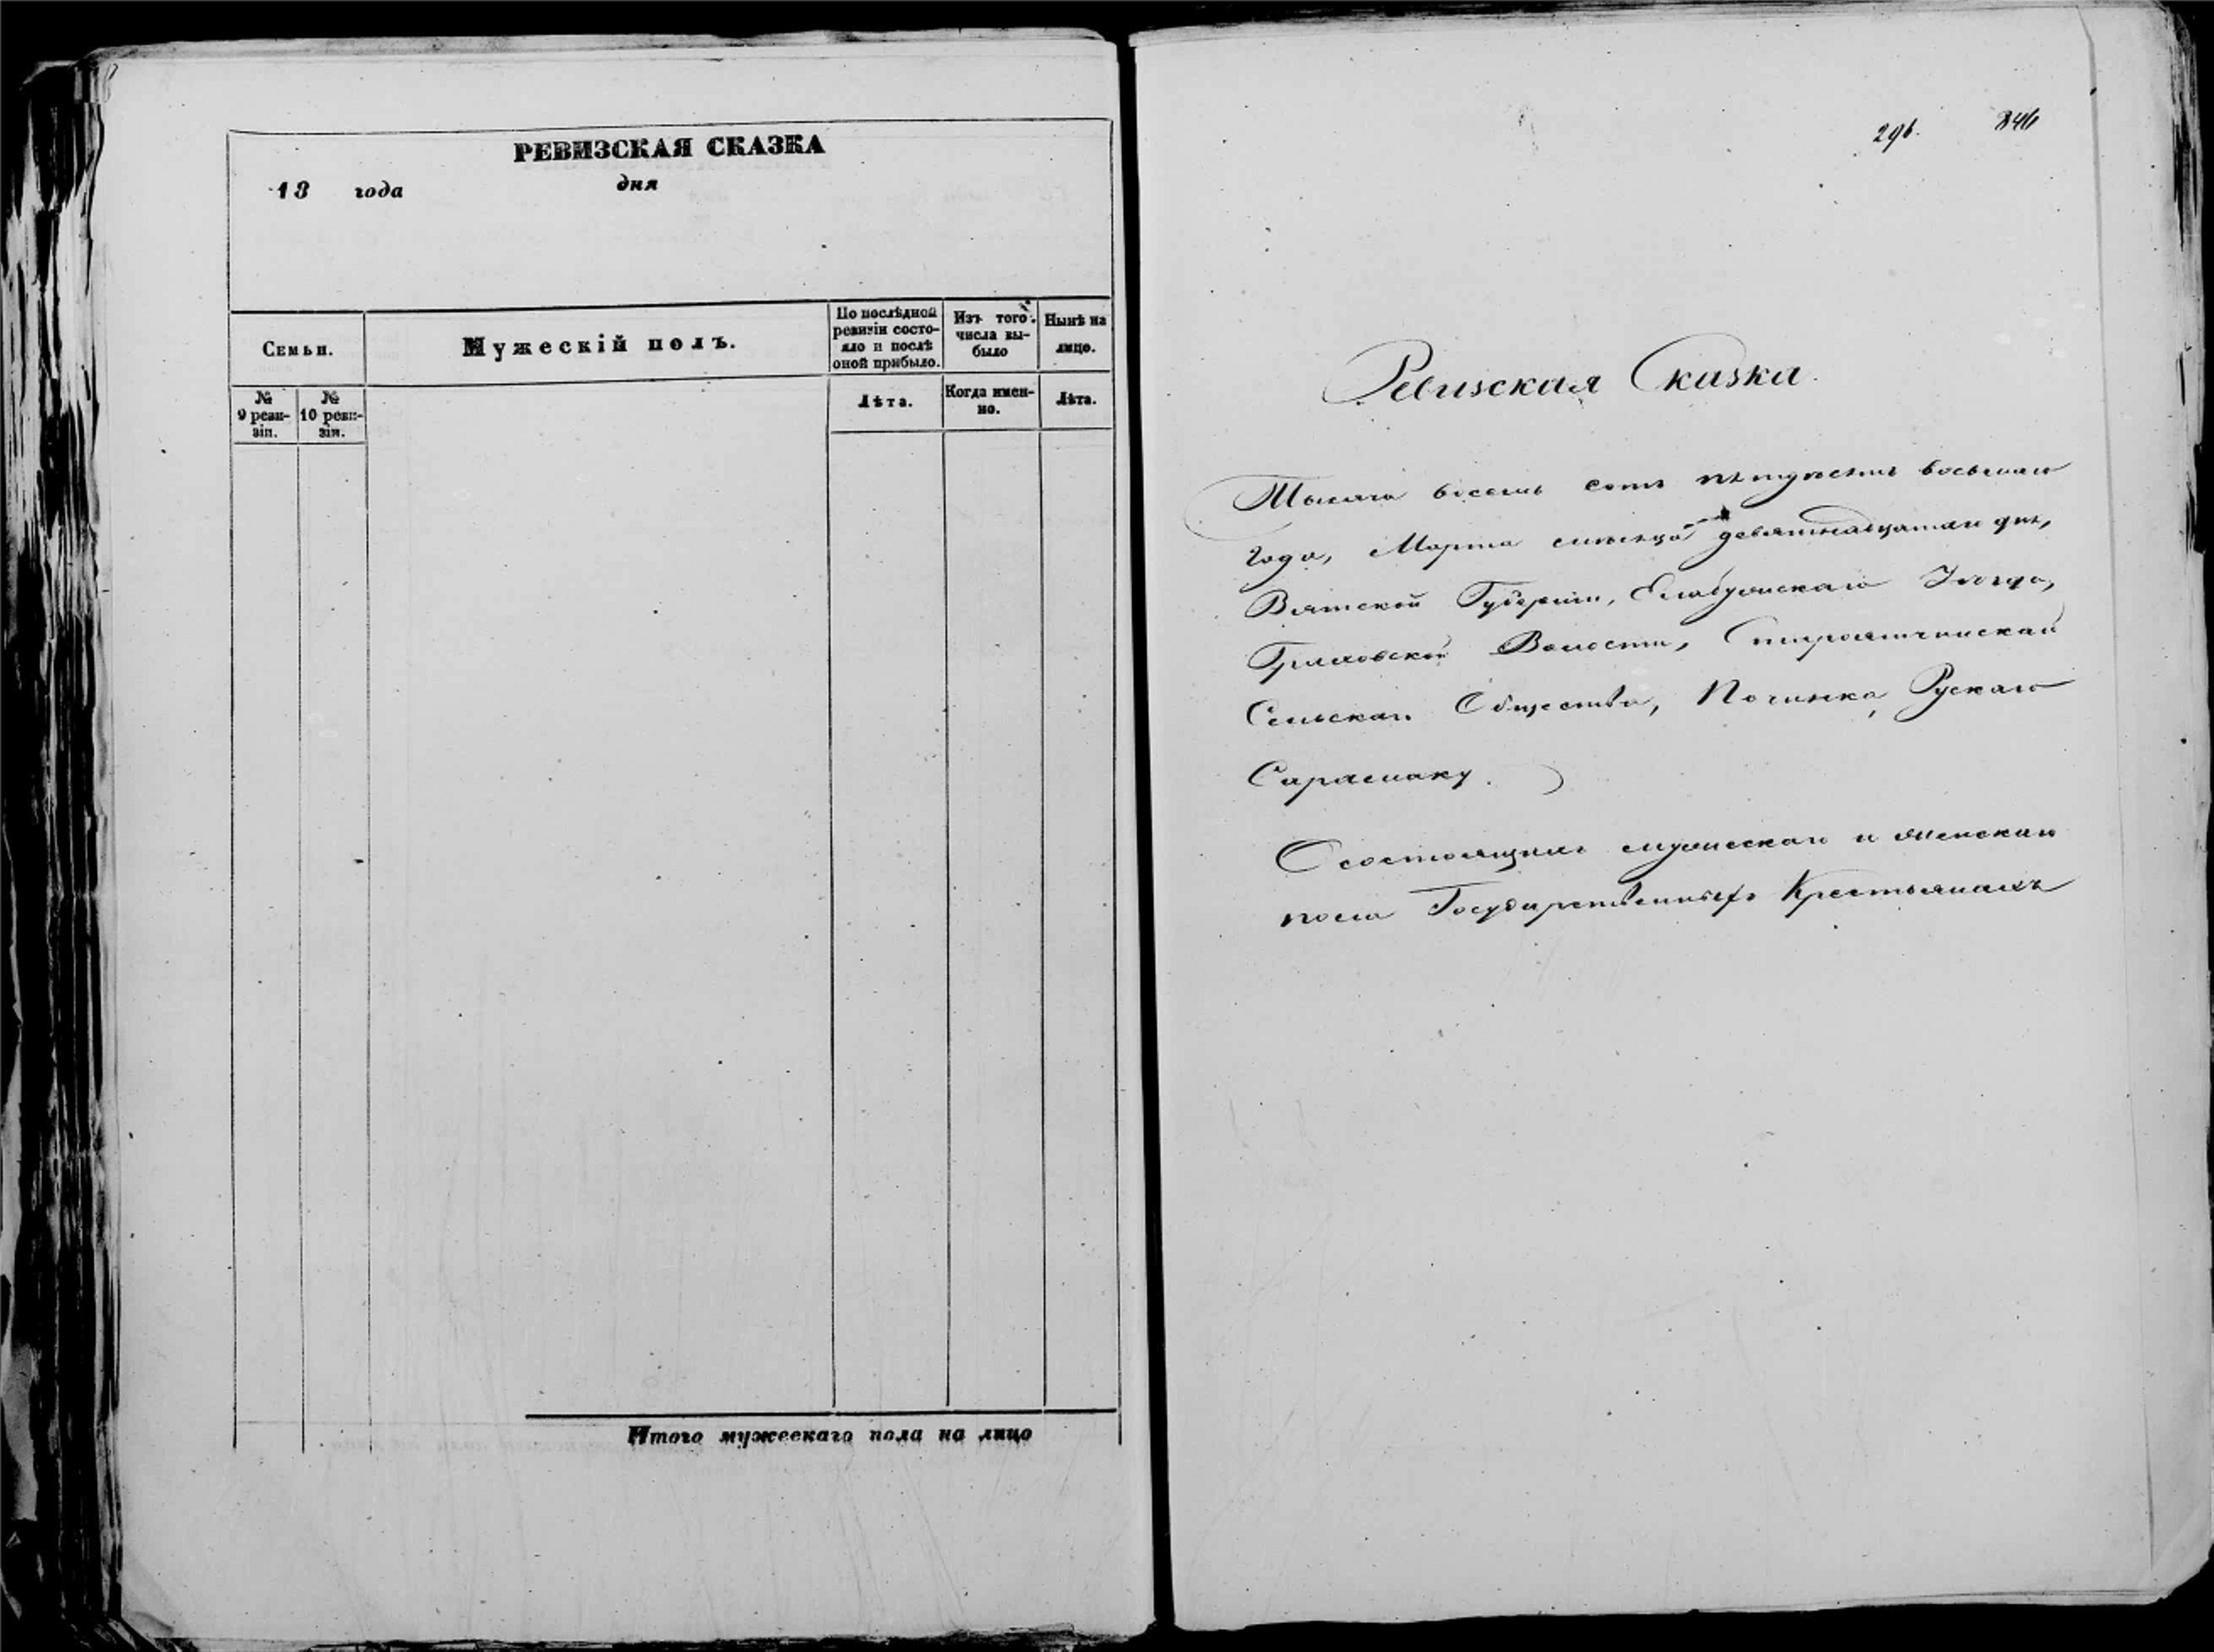 РЕВИЗСКАЯ СКАЗКА
18 года дня
Семьи.
Мужескій полъ.
По послѣдной
ревизіи состо-
яло и послѣ
оной прибыло.
Изъ того
числа вы-
было
Нынѣ на
лицо.
№
9 реви-
зіи.
№
10 реви-
зіи.
Лѣта.
Когда имен-
но.
Лѣта.
Итого мужескаго пола на лицо
296. 846
Ревизская Сказка.
Тысяча восемь сотъ пятдесятъ восьмаго
года, Марта мѣсяца девятнадцатаго дня,
Вятской Губерніи, Елабужскаго Уѣзда,
Волости,
Сельскаго Общества, Починка Рускаго
Сарамаку.
О состоящихъ мужескаго и женскаго
пола Государственныхъ Крестьянахъ